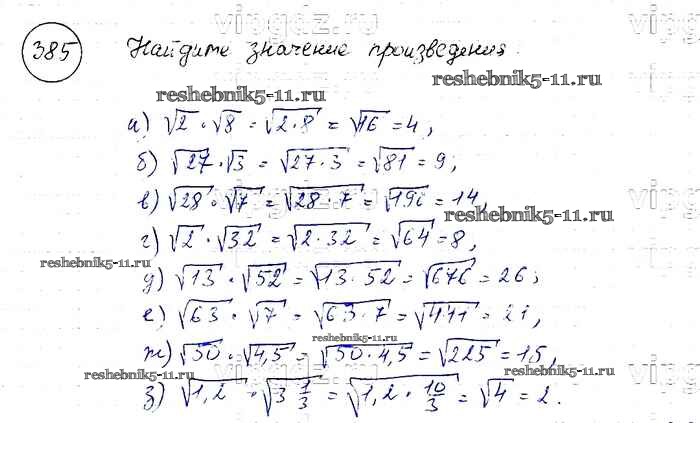 vipgdz.ru
385 Найдите значение произведения.
reshebnik5-11.ru
reshebnik5-11.ru
а) √2 · √8 = √2·8 = √16 = 4,
б) √27 · √3 = √27·3 = √81 = 9;
в) √28 · √7 = √28·7 = √196 = 14,
reshebnik5-11.ru
г) √2 · √32 = √2·32 = √64 = 8,
reshebnik5-11.ru
д) √13 · √52 = √13·52 = √676 = 26;
е) √63 · √7 = √63·7 = √441 = 21,
reshebnik5-11.ru
ж) √50 · √4,5 = √50·4,5 = √225 = 15,
reshebnik5-11.ru
reshebnik5-11.ru
з) √1,2 · √3 1/3 = √1,2 · 10/3 = √4 = 2.